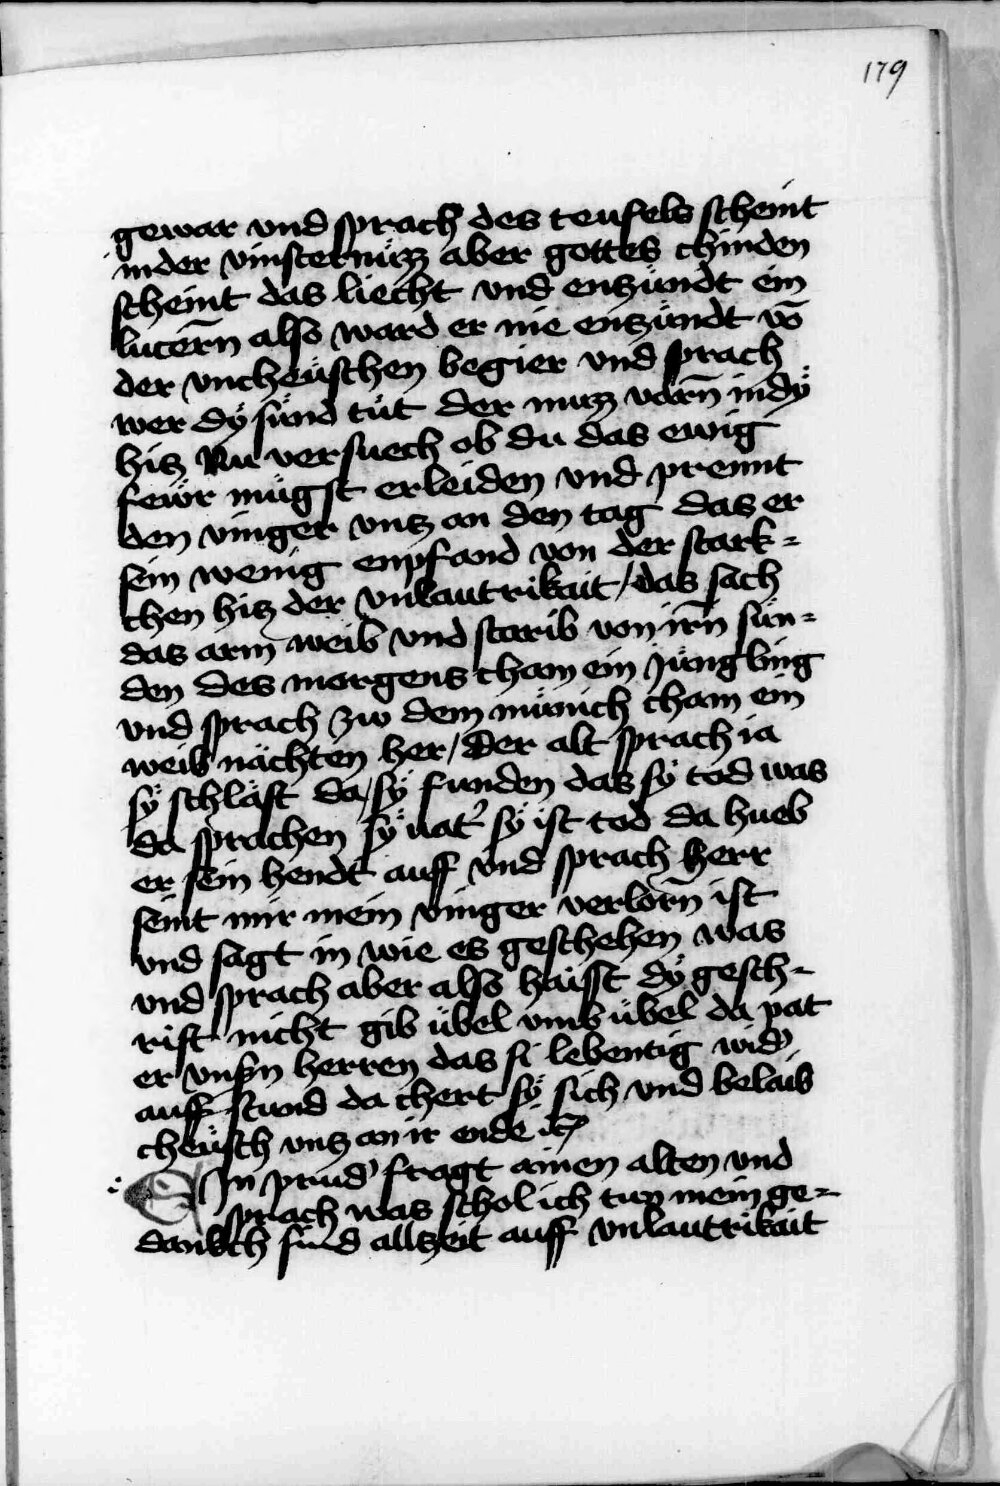 179
gewar vnd sprach des teufels scheint
inder vinsternüzz aber gottes chinden
scheint das liecht vnd enczündt ein
lucern̄ also ward er nie enczündt vō
der vncheüschen begier vnd sprach
wer dÿ sünd tüt der muzz varn̄ indÿ
hicz Nu versuech ob du das ewig
fewr mügst erleiden vnd prennt
den vinger vncz an den tag das er
sein wenig enpfand von der stark=
chen hicz der vnlautrikait / das sach
das arm weib vnd starib von irn̄ sün=
den des morgens cham ein jüngling
vnd sprach zw dem münich cham ein
weib nächten her / der alt sprach ia
sÿ schläft da / sÿ funden das sÿ tod was
da sprachen sÿ vat' sÿ ist tod da hueb
er sein hendt auff vnd sprach herr
seint mir mein vinger verlorn̄ ist
vnd sagt in wie es geschehen was
vnd sprach aber also haisst dÿ gesch-
rift nicht gib übel vmb übel da pat
er vnsn̄ herren das si lebentig wid'
auff stund da chert sÿ sich vnd belaib
cheüsch vncz an ir ende etc
Ein prud' fragt ainen alten vnd
sprach was schol ich tun mein ge-
dankch sind allczeit auff vnlautrikait